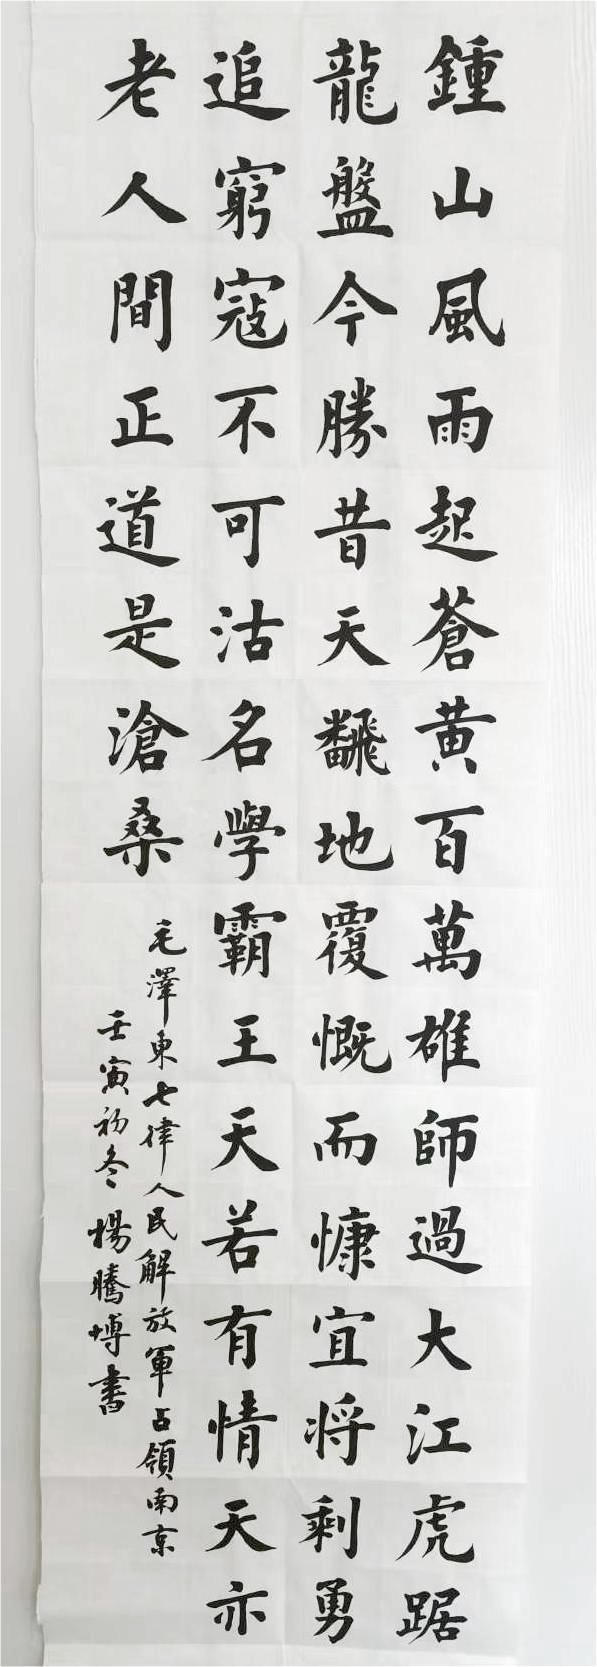 鍾山風雨起蒼黄百萬雄師過大江虎踞
龍盤今勝昔天飜地覆慨而慷宜将剩勇
追窮寇不可沽名學霸王天若有情天亦
老人間正道是滄桑
毛澤東七律人民解放軍占領南京
壬寅初冬楊騰博書